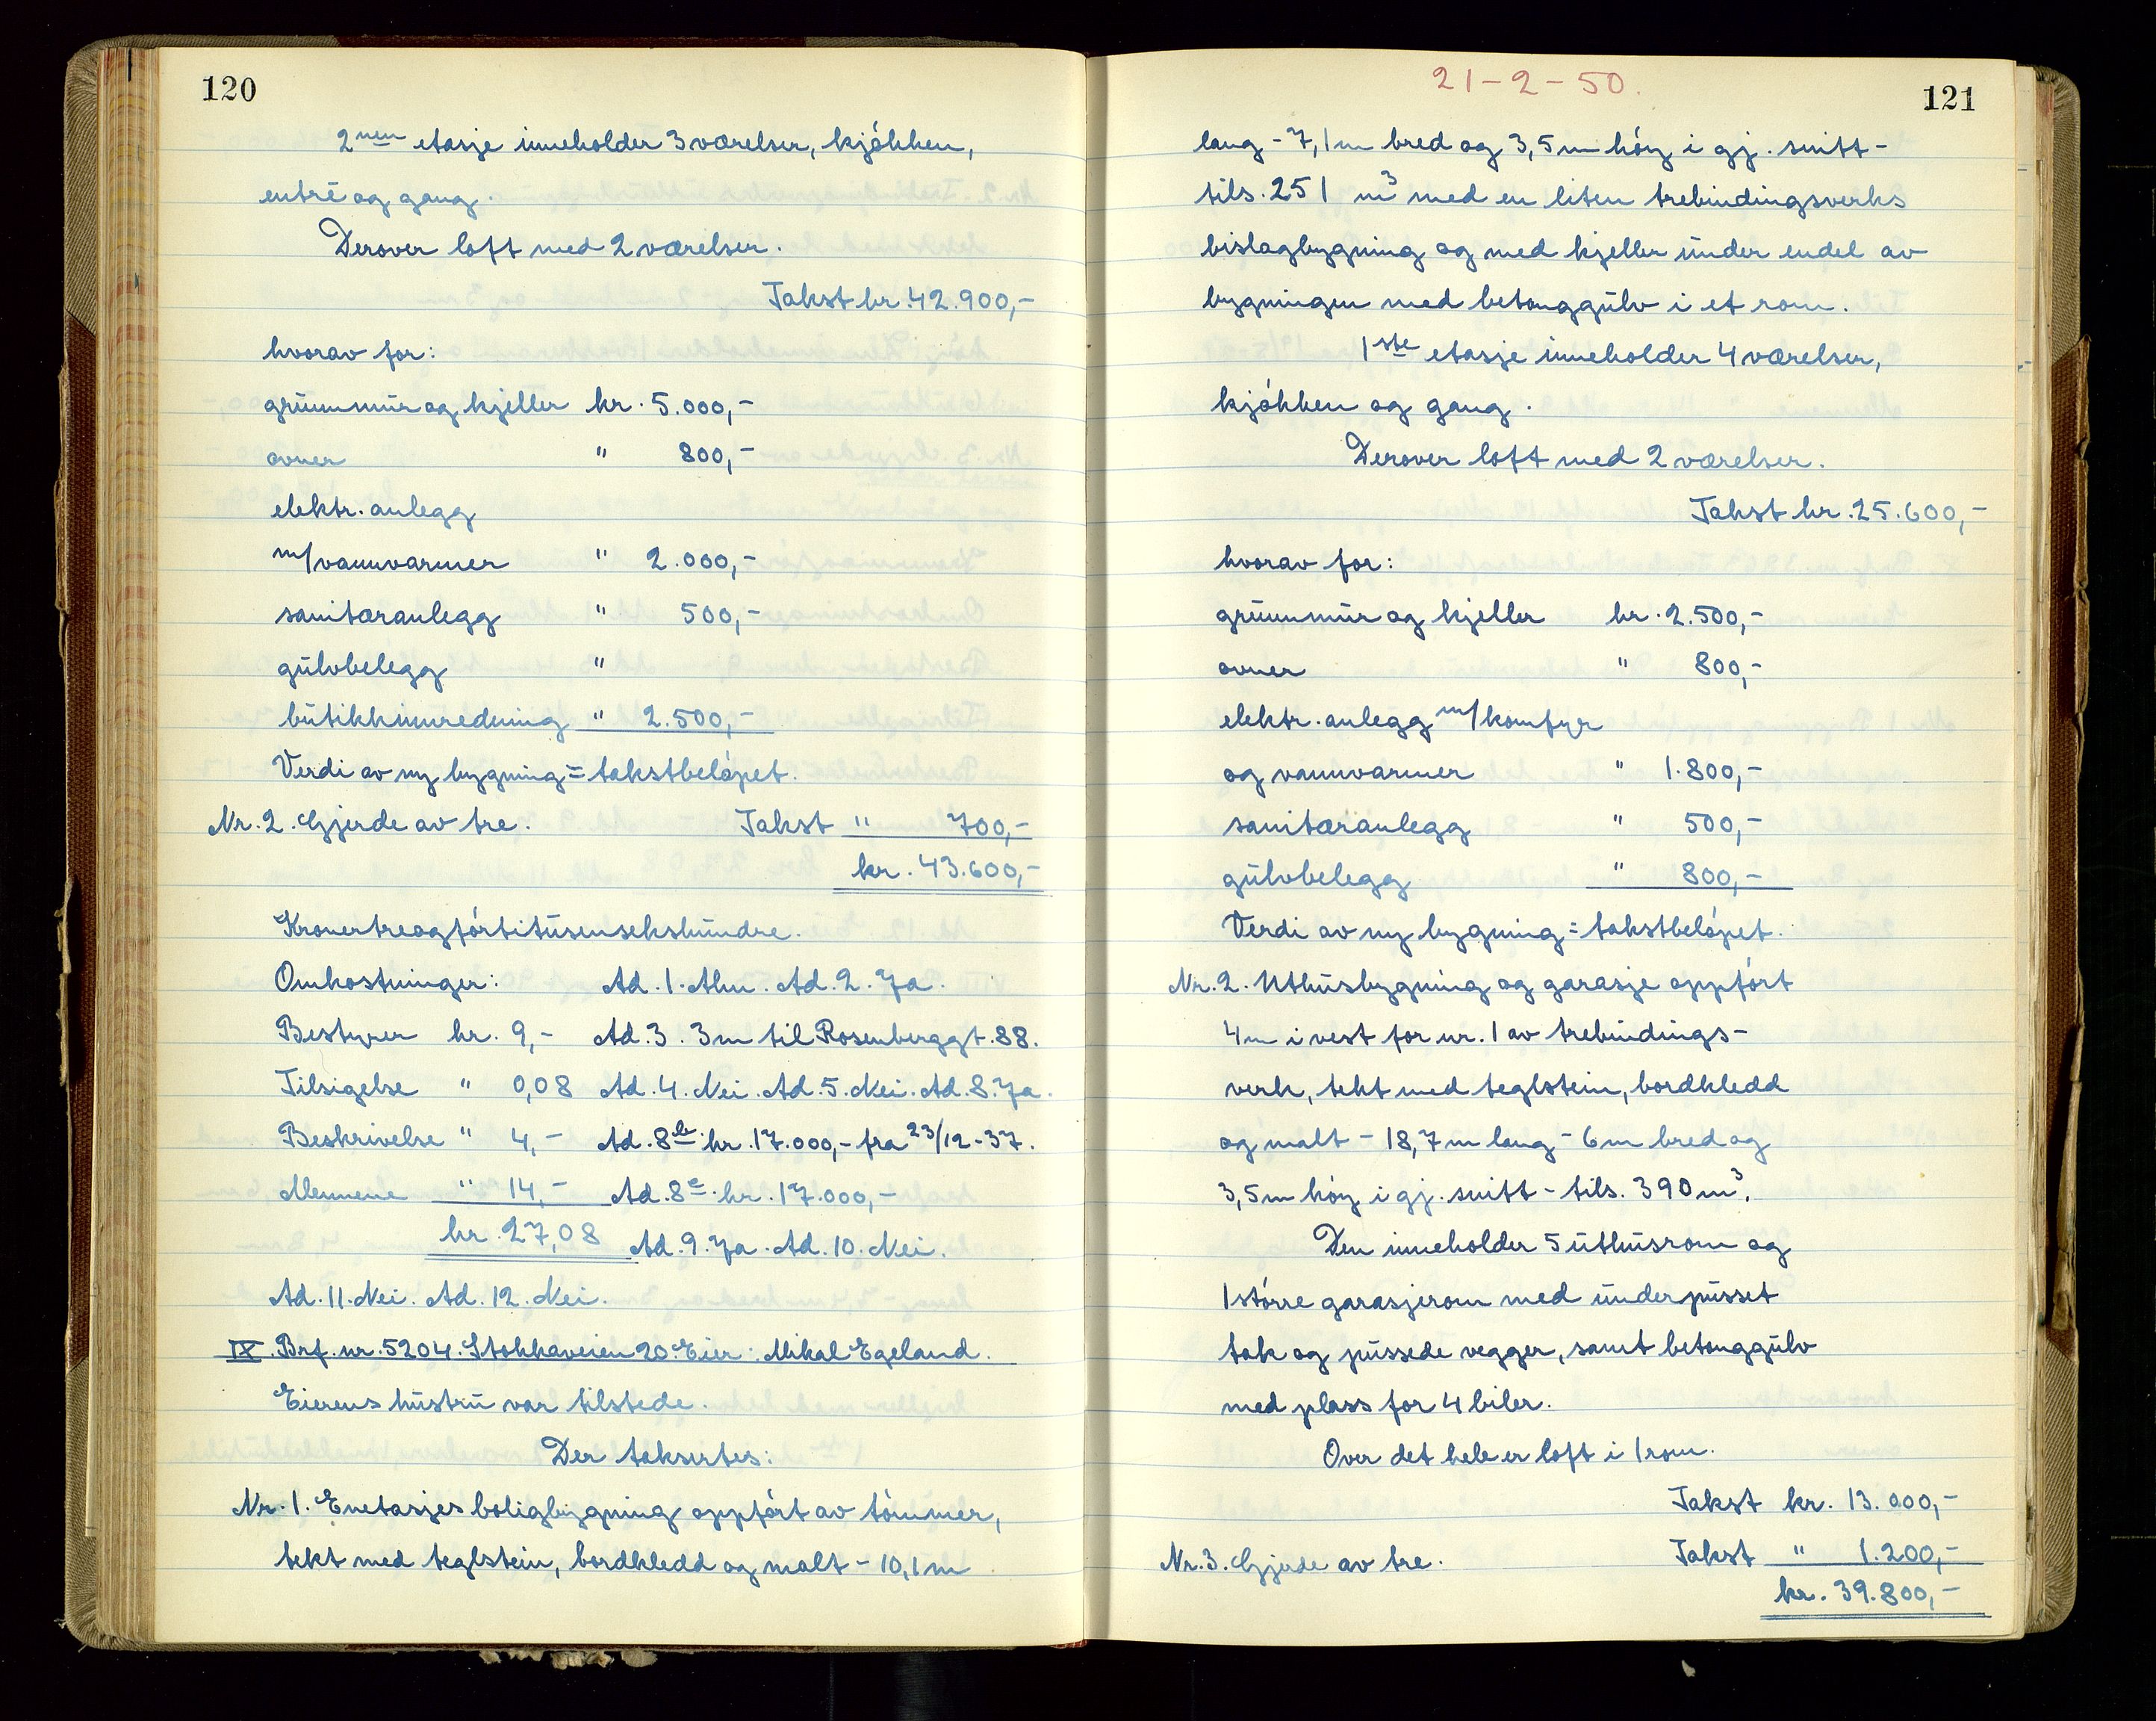 120
2nen etasje inneholder 3 værelser, kjökken,
entré og gang.
Derover loft med 2 værelser.
Takst kr. 42.900,-
hvorav for:
grunnmur og kjeller kr. 5.000,-
ovner " 800,-
elektr. anlegg
m/vannvarmer " 2.000,-
sanitæranlegg " 500,-
gulvbelegg "
butikkinnredning " 2.500,-
Verdi av ny bygning = takstbelöpet.
Nr. 2. Gjerde av tre. Takst " 700,-
kr. 43.600,-
Kronertreogförtitusensekshundre.
Omkostninger: Ad. 1. Alm. Ad. 2. Ja.
Bestyrer kr. 9,- Ad. 3. 3m til Rosenberggt. 88.
Tilsigelse " 0,08 Ad. 4. Nei. Ad. 5. Nei. Ad. 8. Ja.
Beskrivelse " 4,- Ad. 8b. kr. 17.000,- fra 23/12-37.
Mennene " 14,- Ad. 8c. kr. 17.000,-
kr. 27,08 Ad. 9. Ja. Ad. 10. Nei.
Ad. 11. Nei. Ad. 12. Nei.
IX. Brf. nr. 5204. Stokkaveien 20. Eier: Mikal Egeland.
Eierens hustru var tilstede.
Der taksertes:
Nr. 1. Enetasjes boligbygning oppfört av tömmer,
tekt med teglstein, bordkledd og malt - 10,1 m
21-2-50.
121
lang - 7,1 m bred og 3,5 m höy i gj. snitt -
tils. 251 m3 med en liten trebindingsverks
bislagbygning og med kjeller under endel av
bygningen med betonggulv i et rom.
1ste etasje inneholder 4 værelser,
kjökken og gang.
Derover loft med 2 værelser.
Takst kr. 25.600,-
hvorav for:
grunnmur og kjeller kr. 2.500,-
ovner " 800,-
elektr. anlegg m/komfyr
og vannvarmer " 1.800,-
sanitæranlegg " 500,-
gulvbelegg " 800,-
Verdi av ny bygning = takstbelöpet.
Nr. 2. Uthusbygning og garasje oppfört
4m i vest for nr. 1 av trebindings-
verk, tekt med teglstein, bordkledd
og malt - 18,7 m lang - 6 m bred og
3,5 m höy i gj. snitt - tils. 390 m3.
Den inneholder 5 uthusrom og
1 större garasjerom med underpusset
tak og pussede vegger, samt betonggulv
med plass for 4 biler.
Over det hele er loft i 1 rom.
Takst kr. 13.000,-
Nr. 3. Gjerde av tre. Takst " 1.200,-
kr. 39.800,-